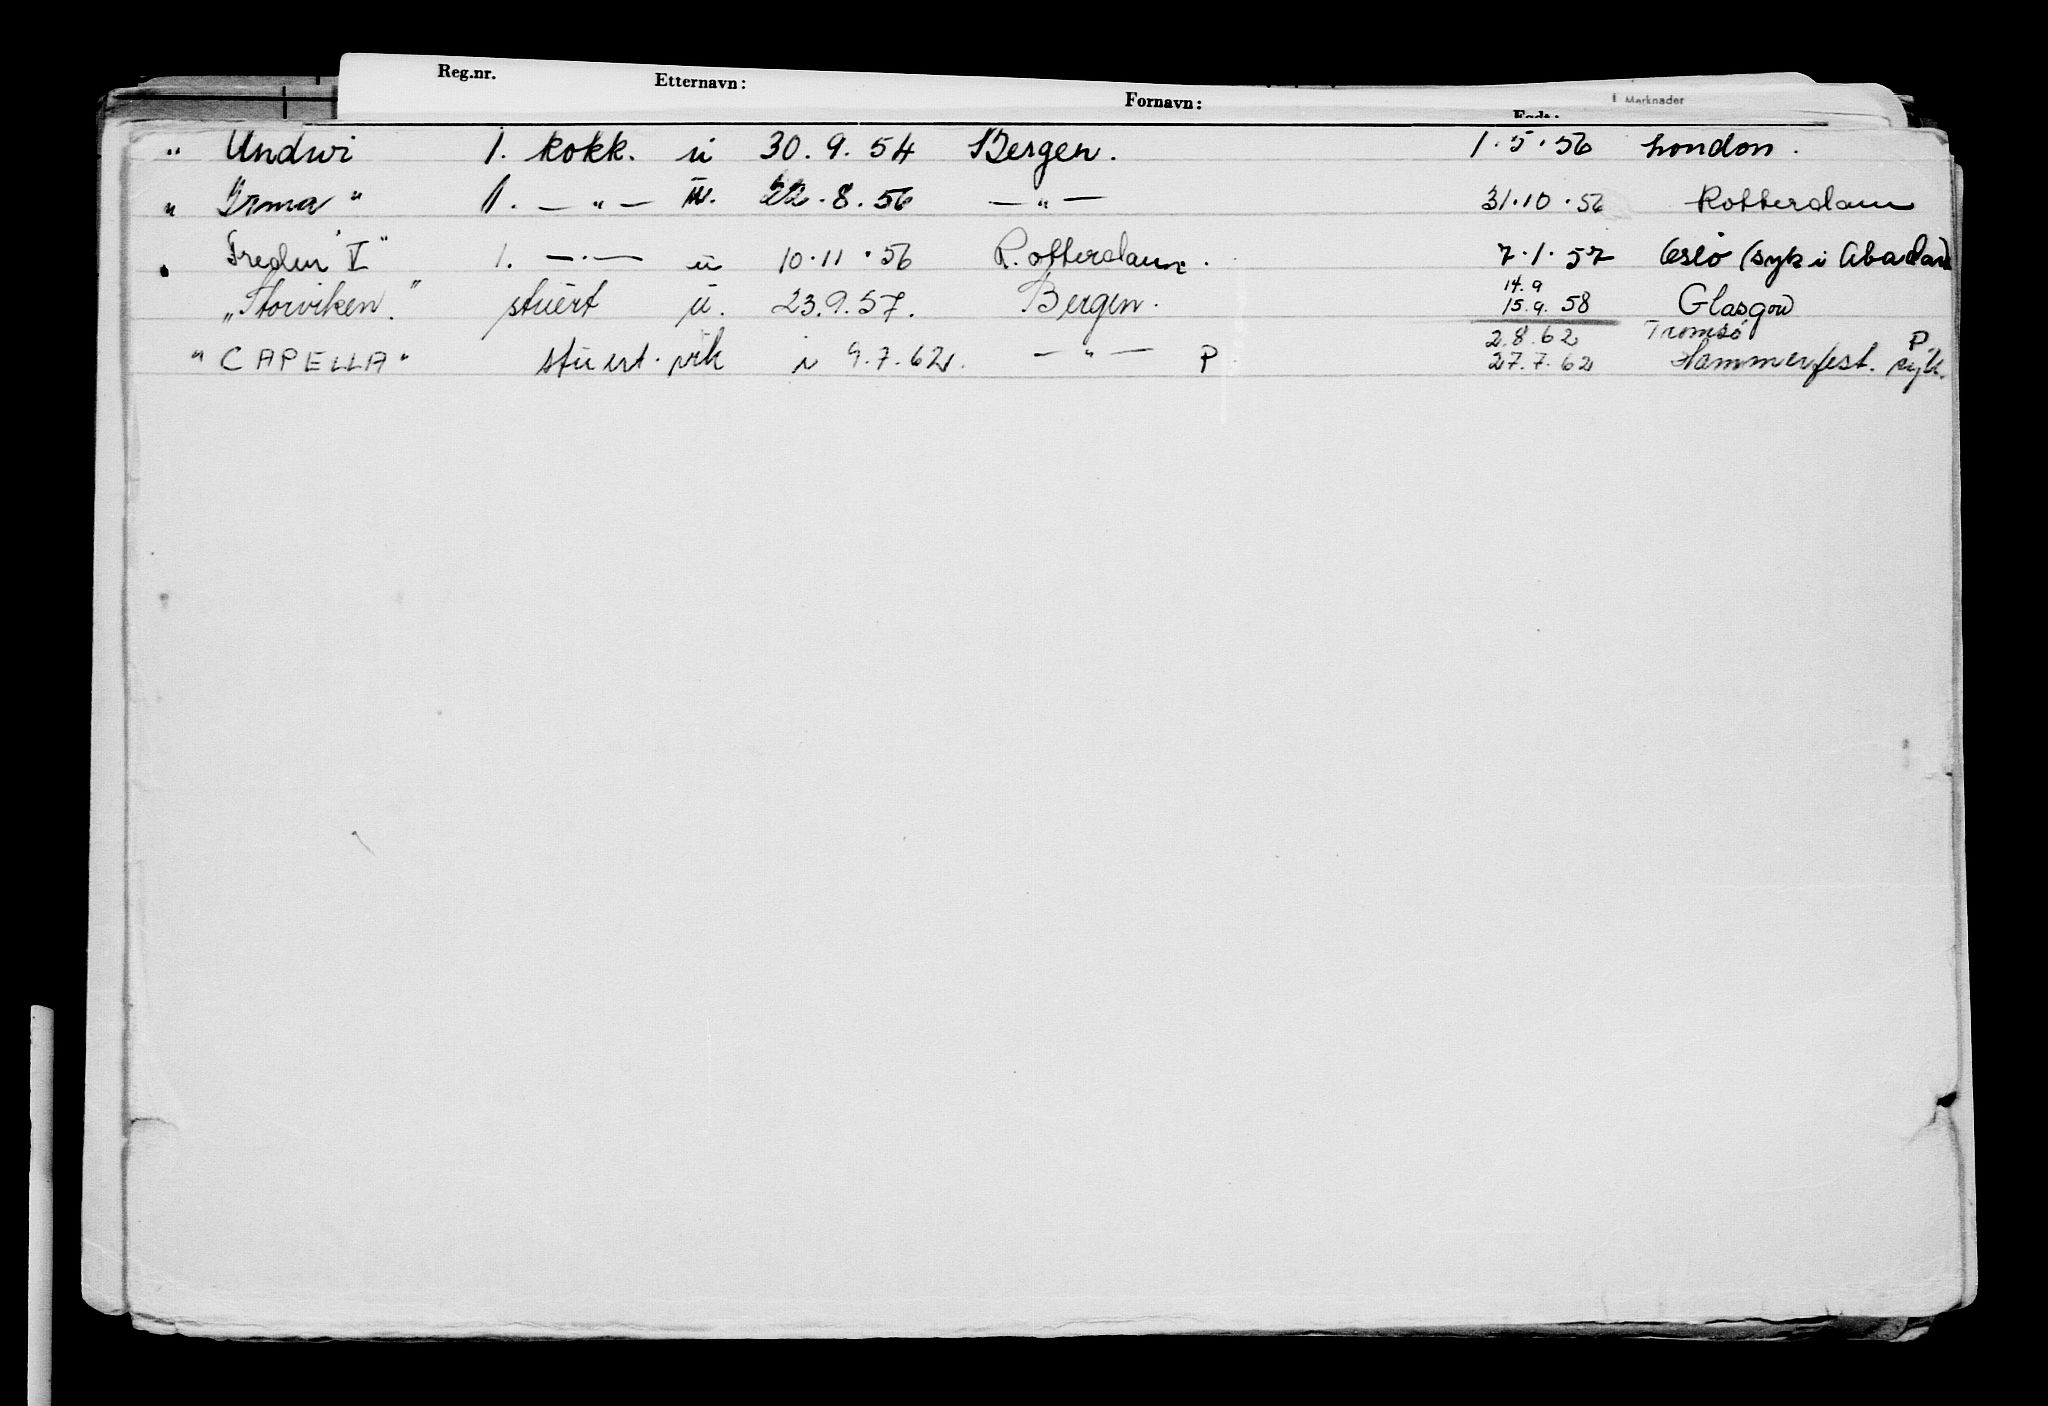 Reg.nr. Etternavn: Fornavn: Merknader
Født:
" Undwi 1. kokk. u 30.9.54 Bergen. 1.5.56 London.
" Irma " 1. — " — u. 22.8.56 — " — 31.10.56 Rotterdam
Credin V" 1. — . — u 10.11.56 Rotterdam. 7.1.57 Oslo (syk i Abadan)
14.9
"Storviken." stuert u. 23.9.57. Bergen. 15.9.58 Glasgow
2.8.62 Tromsø P
"CAPELLA" stuert. vik i 9.7.62. — " — P 27.7.62 Hammerfest. syk.